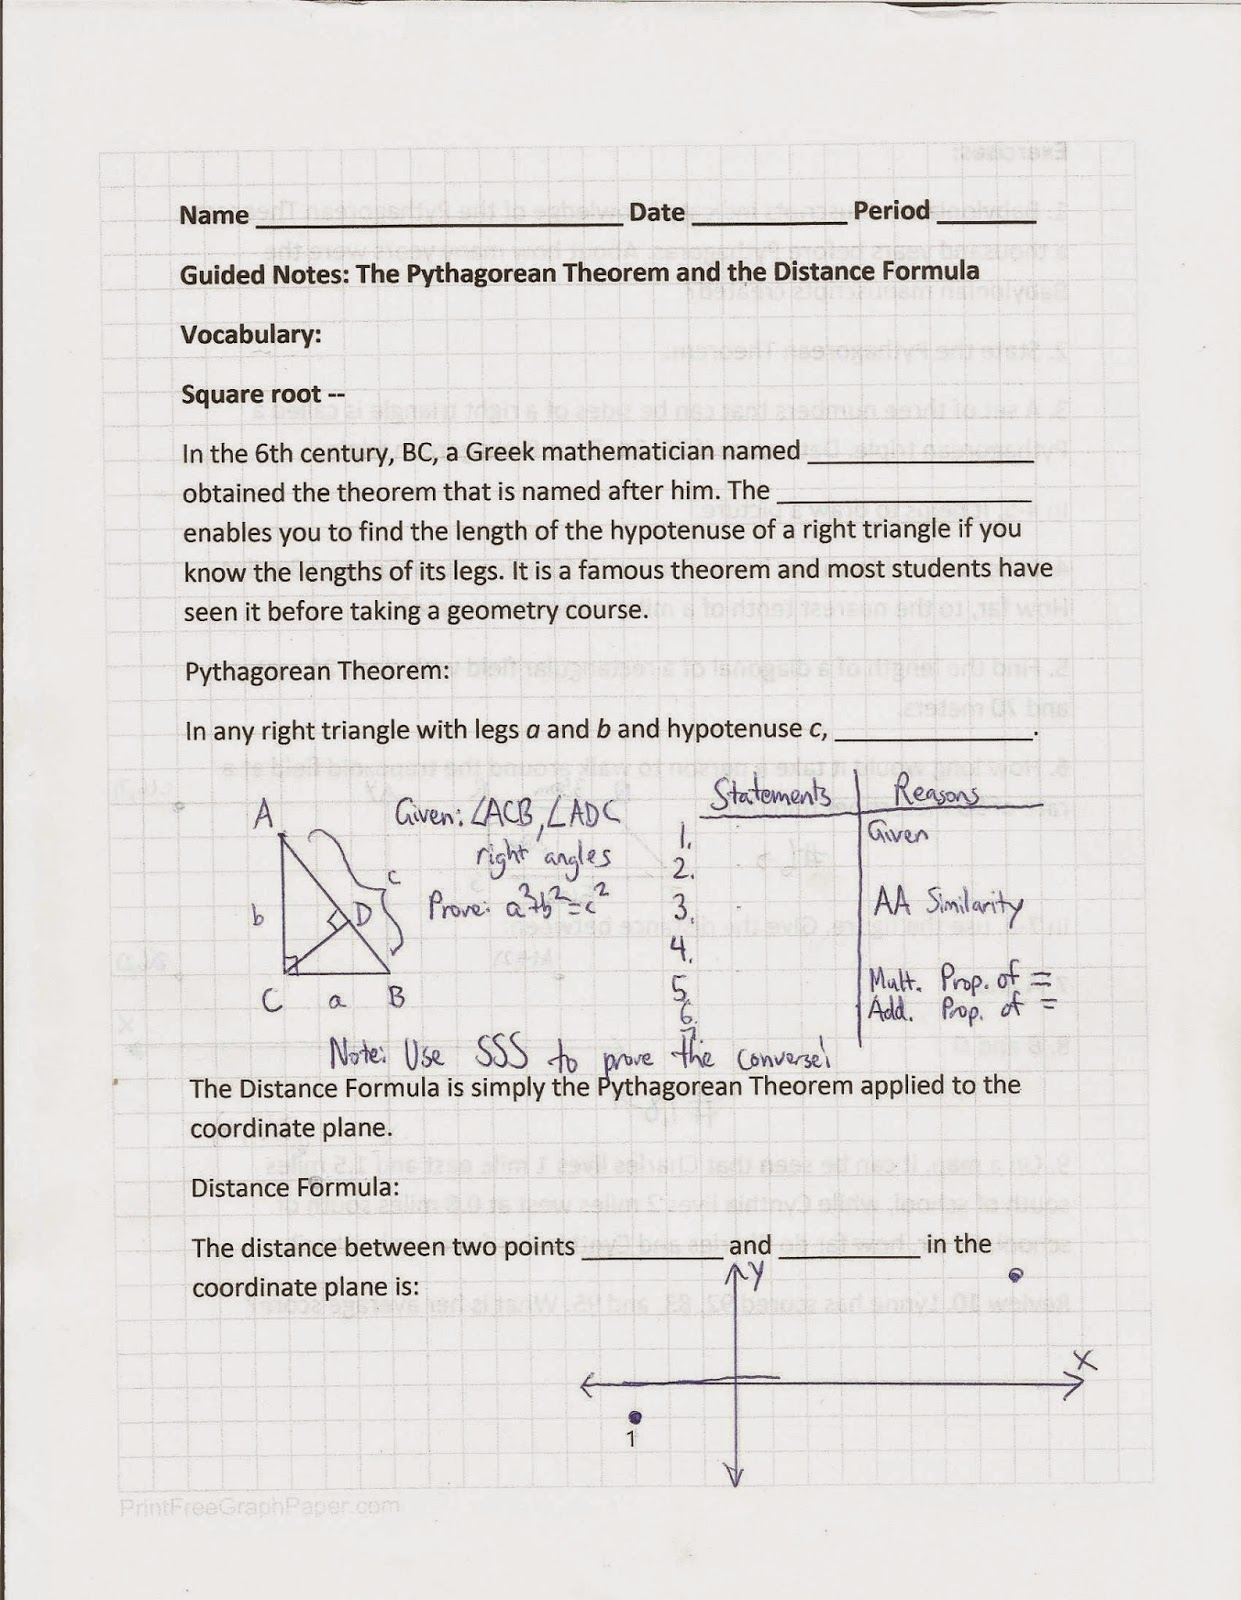 Name ______ Date ______ Period ______
Guided Notes: The Pythagorean Theorem and the Distance Formula
Vocabulary:
Square root --
In the 6th century, BC, a Greek mathematician named ______
obtained the theorem that is named after him. The ______
enables you to find the length of the hypotenuse of a right triangle if you
know the lengths of its legs. It is a famous theorem and most students have
seen it before taking a geometry course.
Pythagorean Theorem:
In any right triangle with legs a and b and hypotenuse c, ______.
A
b
c
D
C a B
Given: ∠ACB, ∠ADC
right angles
Prove: a²+b²=c²
Statements Reasons
1. Given
2.
3. AA Similarity
4.
5. Mult. Prop. of =
6. Add. Prop. of =
7.
Note: Use SSS to prove the converse!
The Distance Formula is simply the Pythagorean Theorem applied to the
coordinate plane.
Distance Formula:
The distance between two points ______ and ______ in the
coordinate plane is:
y
x
1
PrintFreeGraphPaper.com